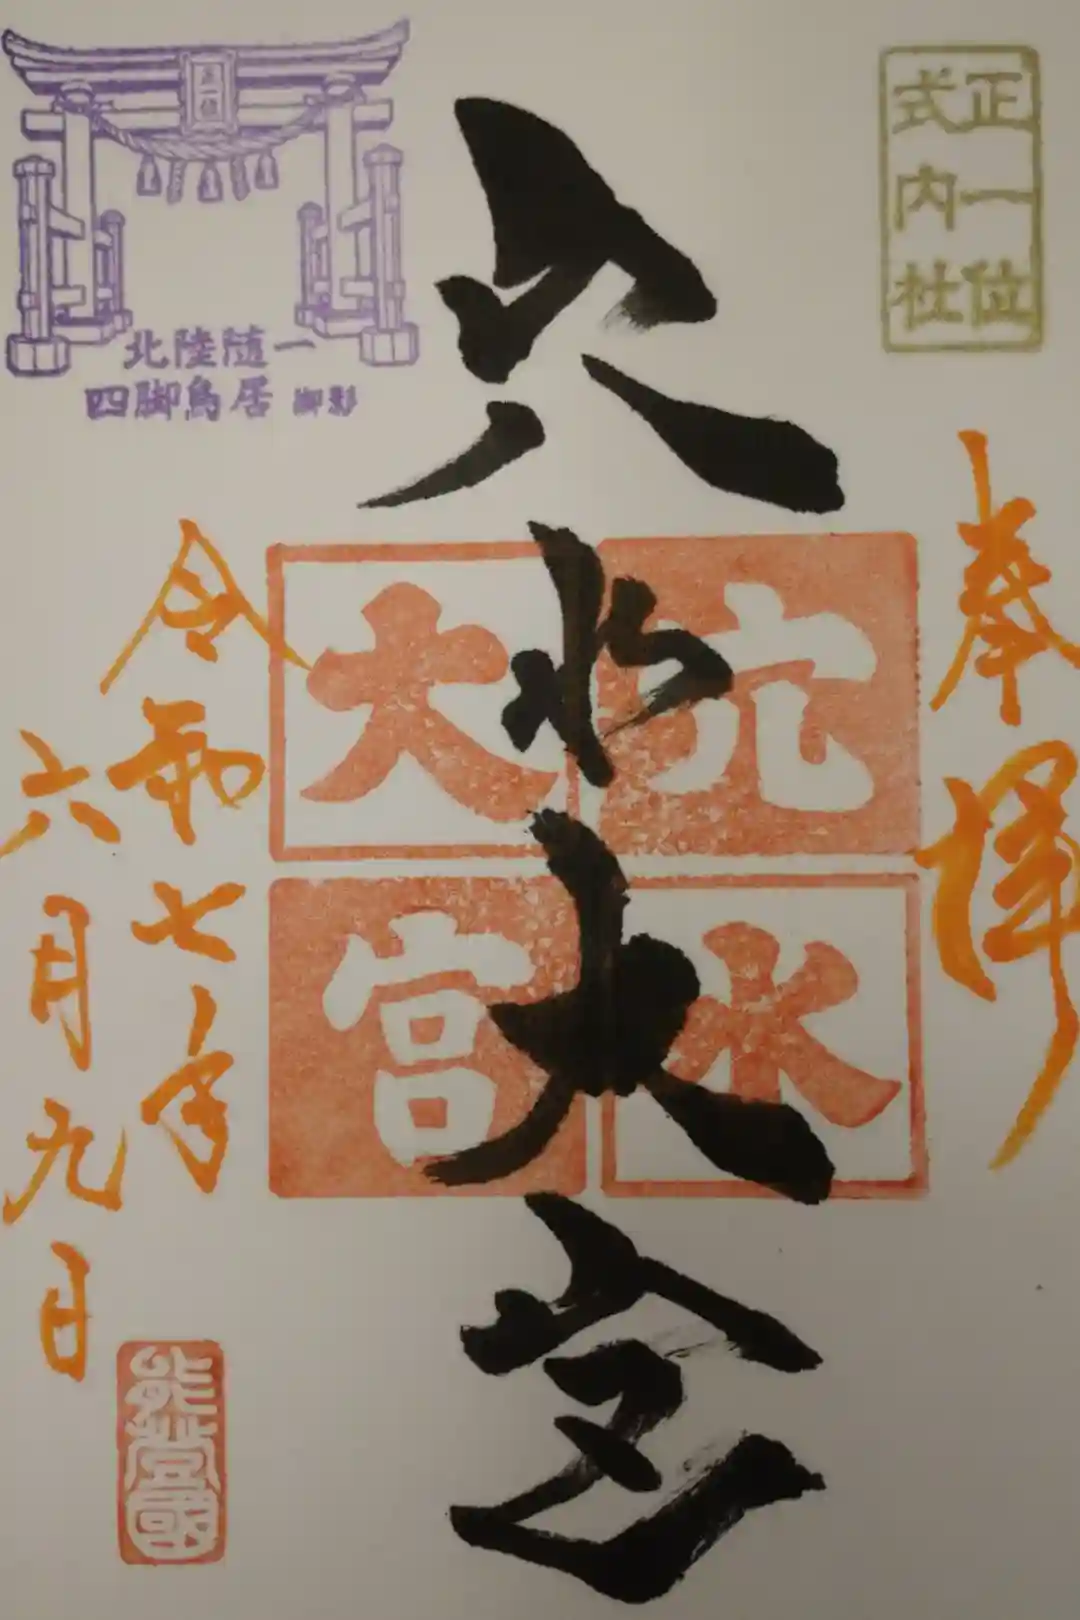 正一位
式内社
奉拝
穴水大宮
穴水
大宮
正一位
北陸随一
四脚鳥居 御影
令和七年
六月九日
能登國